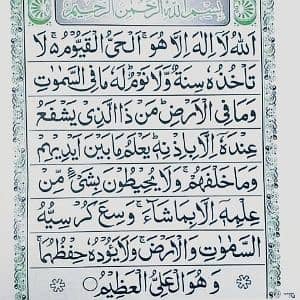 بِسْمِ اللهِ الرَّحْمٰنِ الرَّحِيْمِ
اَللهُ لَآ اِلٰهَ اِلَّا هُوَ ۚ اَلْحَيُّ الْقَيُّوْمُ ۵ لَا
تَاْخُذُهٗ سِنَةٌ وَّلَا نَوْمٌ ؕ لَهٗ مَا فِي السَّمٰوٰتِ
وَمَا فِي الْاَرْضِ ؕ مَنْ ذَا الَّذِيْ يَشْفَعُ
عِنْدَهٗٓ اِلَّا بِاِذْنِهٖ ؕ يَعْلَمُ مَا بَيْنَ اَيْدِيْهِمْ
وَمَا خَلْفَهُمْ ۚ وَلَا يُحِيْطُوْنَ بِشَيْءٍ مِّنْ
عِلْمِهٖٓ اِلَّا بِمَا شَآءَ ۚ وَسِعَ كُرْسِيُّهُ
السَّمٰوٰتِ وَالْاَرْضَ ۚ وَلَا يَـُٔوْدُهٗ حِفْظُهُمَا ۚ
وَهُوَ الْعَلِيُّ الْعَظِيْمُ ○